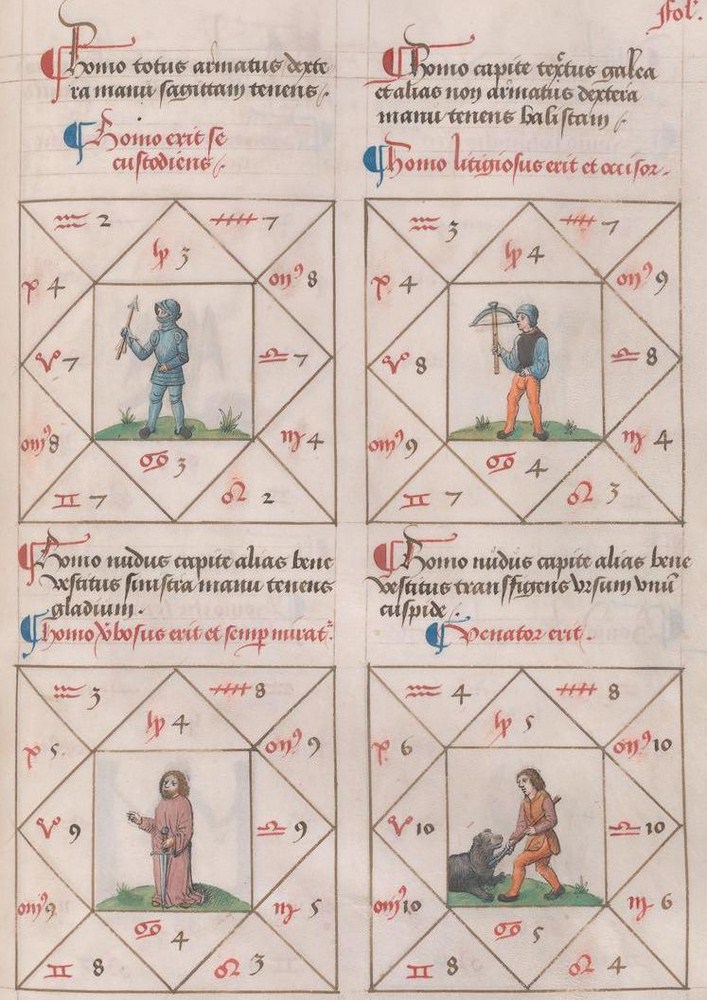 fol.
Homo totus armatus dexte
ra manu sagittam tenens
Homo erit se
custodiens
Homo capite textus galea
et alias non armatus dextera
manu tenens balistam
Homo litigiosus erit et occisor.
♒ 2
7
3
♓ 4
8
♈ 7
♎ 7
8
♏ 4
♋ 3
♊ 7
♌ 2
♒ 3
7
4
♓ 4
9
♈ 8
♎ 8
9
♏ 4
♋ 4
♊ 7
♌ 3
Homo nudus capite alias bene
vestitus sinistra manu tenens
gladium.
Homo v̄bosus erit et semp mirat̄.
Homo nudus capite alias bene
vestitus transffigens vrsum vnū
cuspide
Venator erit.
♒ 3
8
4
♓ 5.
9
♈ 9
♎ 9
9
♏ 5
♋ 4
♊ 8
♌ 3
♒ 4
8
5
♓ 6
10
♈ 10
♎ 10
10
♏ 6
♋ 5
♊ 8
♌ 4